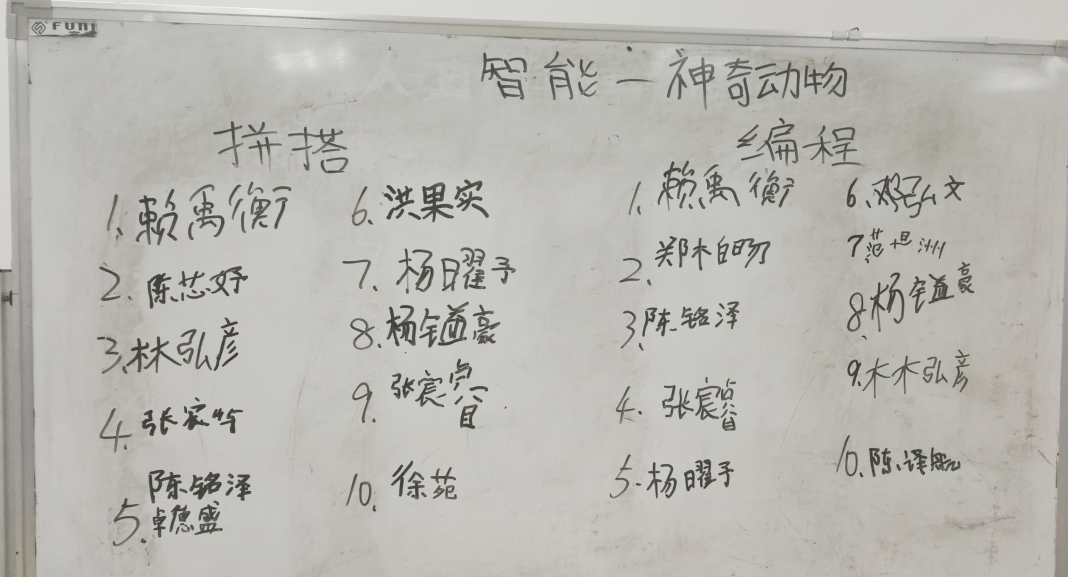 FUNI
智能一神奇动物
拼搭
1.赖禹衡
2.陈芯妤
3.林弘彦
4.张家
5.陈铭泽
卓德盛
6.洪果实
7.杨曜予
8.杨镒豪
9.张宸睿
10.徐苑
编程
1.赖禹衡
2.郑
3.陈铭泽
4.张宸睿
5.杨曜予
6.弘文
7.范
8.杨镒豪
9.林弘彦
10.陈译